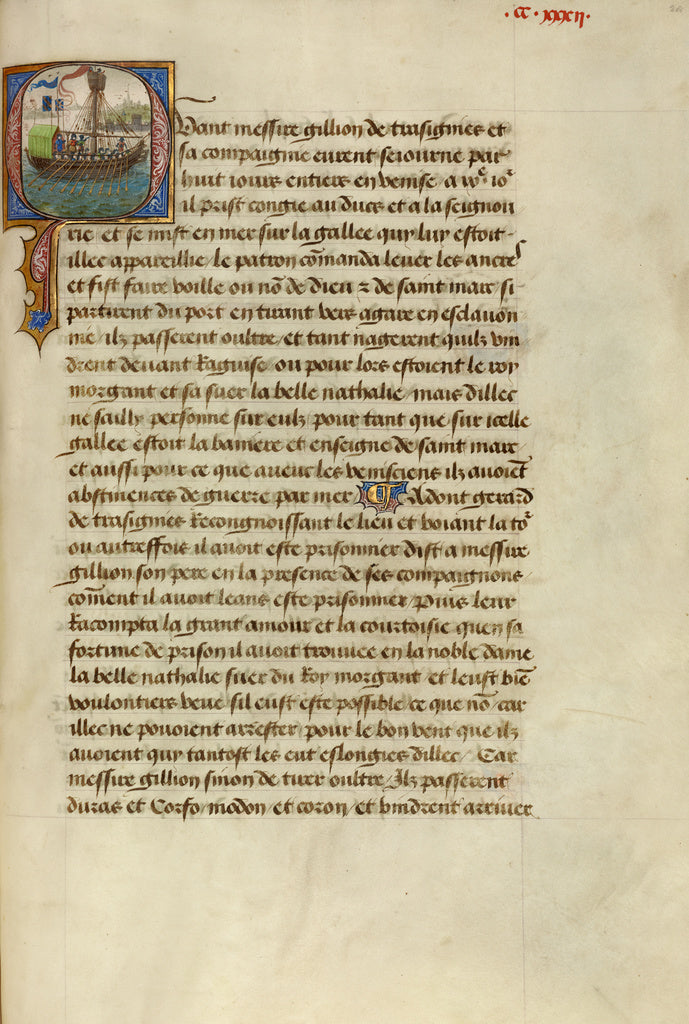 .CC.xxxii.
Quant messire gillion de trasignies et
sa compaignie eurent seiourne par
huit iours entiers en venise
il prist congie au ducs et a la seignou
rie et se mist en mer sur la gallee quy luy estoit
illec appareillie / le patron cōmanda lever les ancres
et fist faire voille ou nō de dieu z de saint marc si
partirent du port en tirant vers agare en esclavon
nie / ilz passerent oultre / et tant nagerent quilz vin
drent devant Raguise ou pour lors estoient le roy
morgant et sa suer la belle nathalie / mais dillec
ne sailly personne sur eulz pour tant que sur icelle
gallee estoit la baniere et enseigne de saint marc
et aussi pour ce que avecz les venisciens ilz avoiēt
abstinences de guerre par mer / Adont gerard
de trasignies Recongnoissant le lieu et voiant la to2
ou autreffois il avoit este prisonnier dist a messire
gillion son pere en la presence de ses compaignons
cōment il avoit leans este prisonnier / Puis leur
Racompta la grant amour et la courtoisie quen sa
fortune de prison il avoit trouvee en la noble dame
la belle nathalie suer du Roy morgant et leust biē
voulontiers veue sil eust este possible ce que nō / car
illec ne povoient arrester pour le bon vent que ilz
avoient quy tantost les eut eslongies dillec / Car
messire gillion sinon de tirer oultre / Ilz passerent
duras et Corfo / modon / et coron / et vindrent arriver